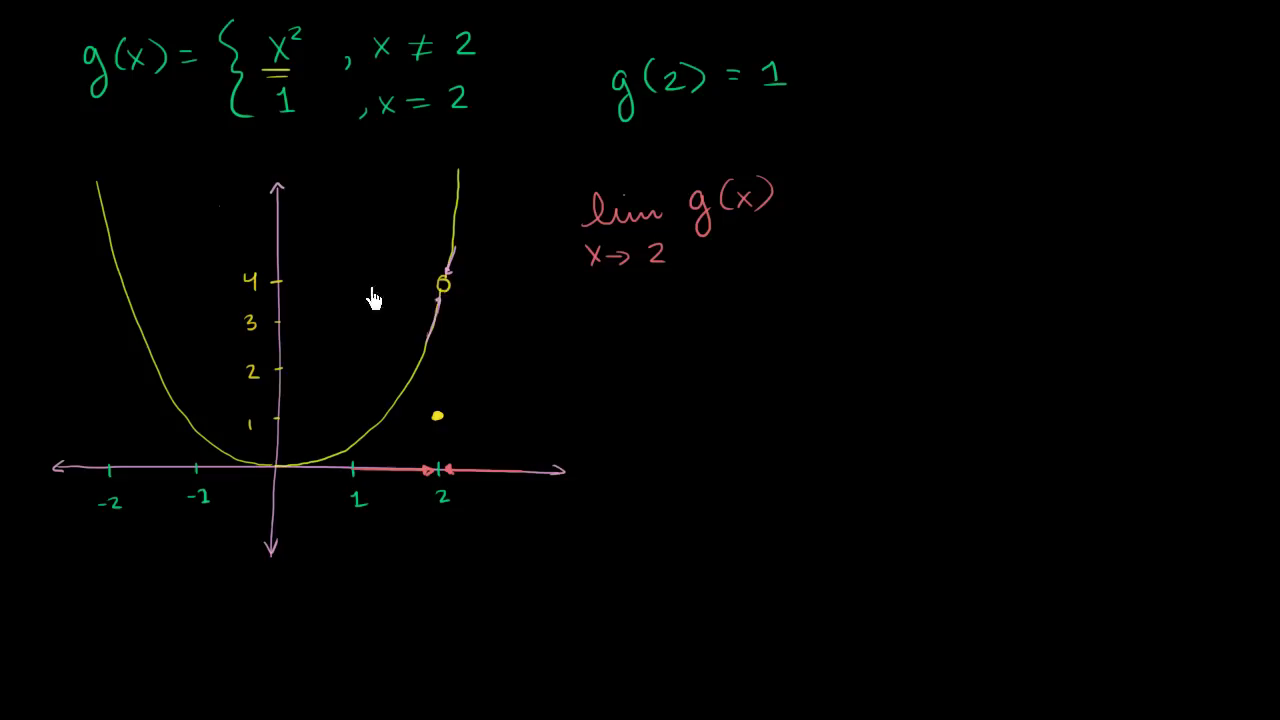 g(x) = { x² , x ≠ 2
1 , x = 2
g(2) = 1
lim g(x)
x→2
4
3
2
1
-2 -1 1 2